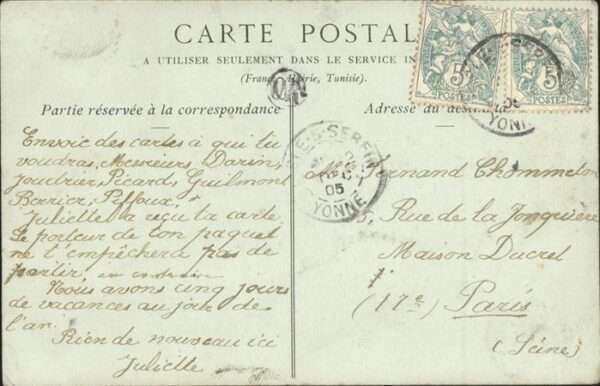 CARTE POSTALE
A UTILISER SEULEMENT DANS LE SERVICE
(France, Algérie, Tunisie).
Partie réservée à la correspondance
Envoie des cartes à qui tu
voudras, Messieurs Darin,
Joudrier, Picards, Guilmont
Barrier, Peffoux.
Juliette a reçu la carte
Le porteur de ton paquet
ne t'empêchera pas de
partir,
Nous avons cinq jours
de vacances au jour de
l'an.
Rien de nouveau ici
Juliette
Adresse du destinataire
Fernand Chommeton
5, Rue de la Jonquière
Maison Ducrel
(17e) Paris
(Seine)
5 POSTES
5 POSTES
YONNE
05
YONNE